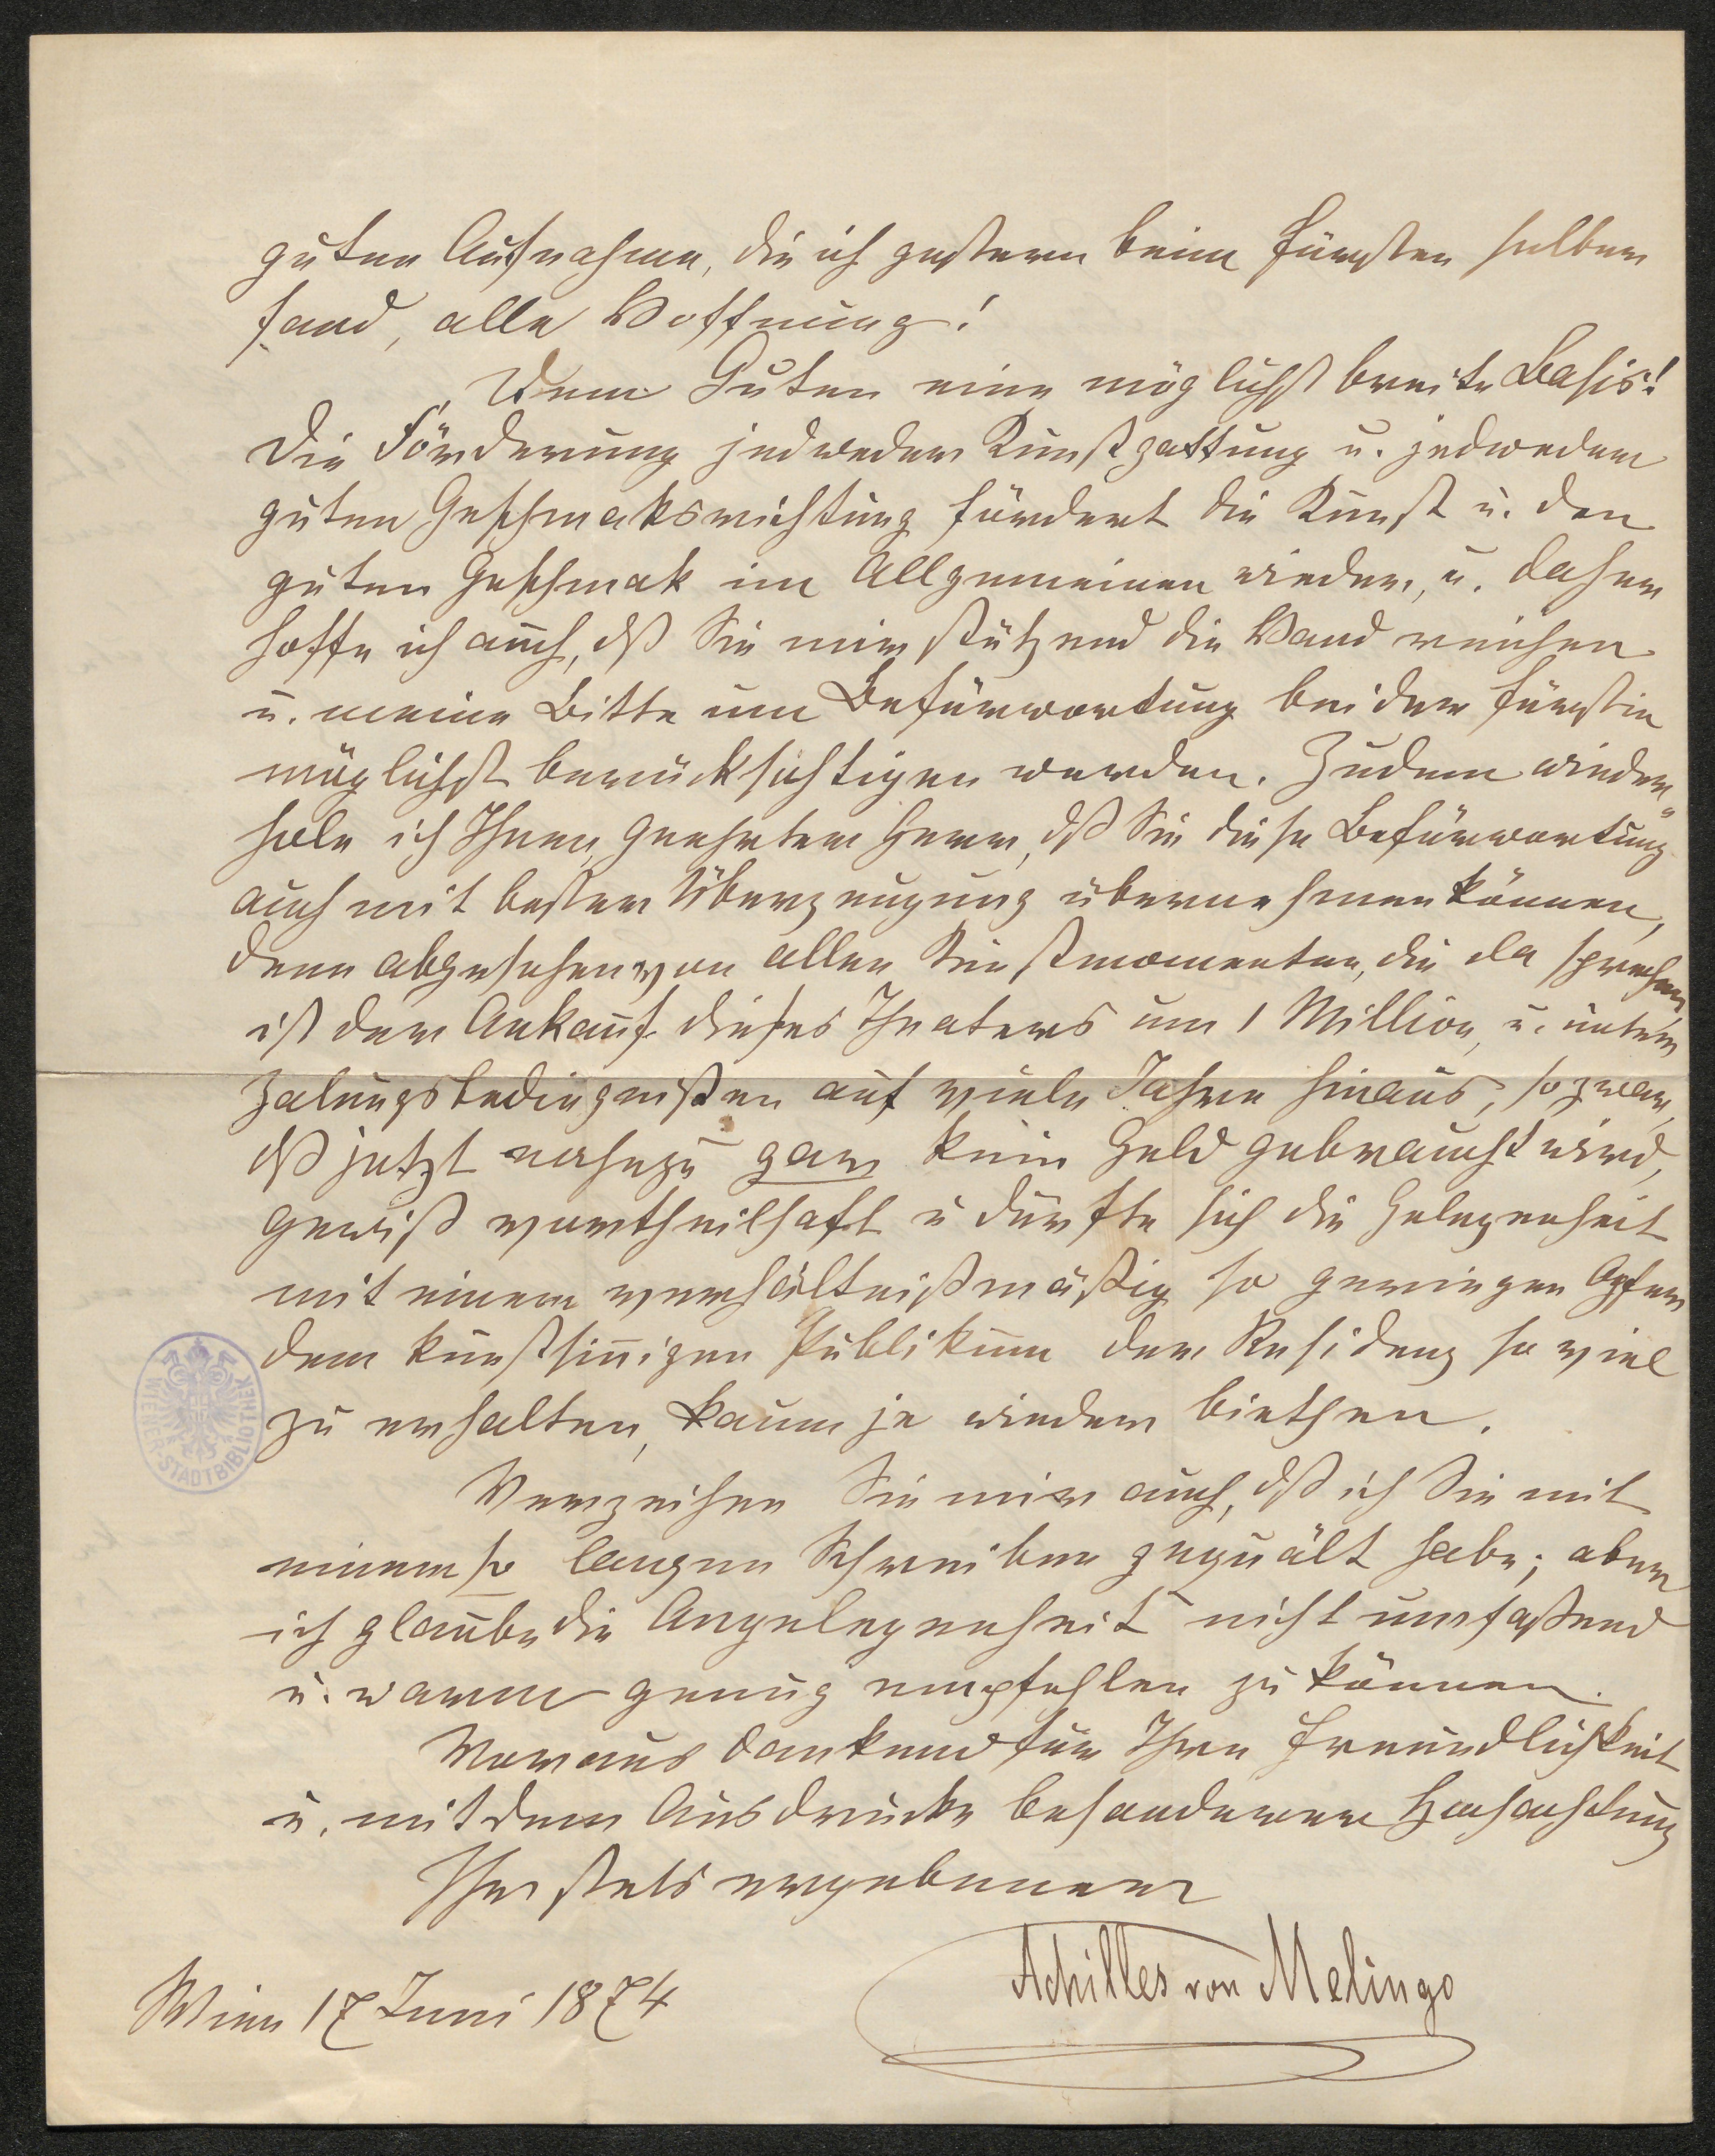 guten Aufnahme, die ich gestern beim Fürsten selber
fand, alle Hoffnung!
Dem Guten eine möglichst breite Basis!
Die Förderung jedweder Kunstgattung u. jedweder
guten Geschmaksrichtung fördert die Kunst u. den
guten Geschmak im Allgemeinen wieder, u. daher
hoffe ich auch, dß Sie mir stützend die Hand reichen
u. meine Bitte um Befürwortung bei der Fürstin
möglichst berücksichtigen werden. Zudem wieder„
hole ich Ihnen, geehrter Herr, dß Sie diese Befürwortung
auch mit bester Überzeugung übernehmen können,
denn abgesehen von allen Kunstmomenten, die da sprechen,
ist der Ankauf dieses Theaters um 1 Million, u. unter
Zalungsbedingnißen auf viele Jahre hinaus, so zwar,
dß jetzt nahezu gar kein Geld gebraucht wird,
gewiß vortheilhaft u dürfte sich die Gelegenheit
mit einem verhältnißmäßig so geringen Opfer
dem kunstsinnigen Publikum der Residenz so viel
zu erhalten, kaum je wieder biethen.
Verzeihen Sie mir auch, dß ich Sie mit
einem so langen Schreiben gequält habe; aber
ich glaube die Angelegenheit nicht umfaßend
u. warm genug empfehlen zu können.
Voraus dankend für Ihre Freundlichkeit
u. mit dem Ausdrucke besonderer Hochachtung
Ihr stets ergebener
Achilles von Melingo
Wien 17 Juni 1874
WIENER STADTBIBLIOTHEK